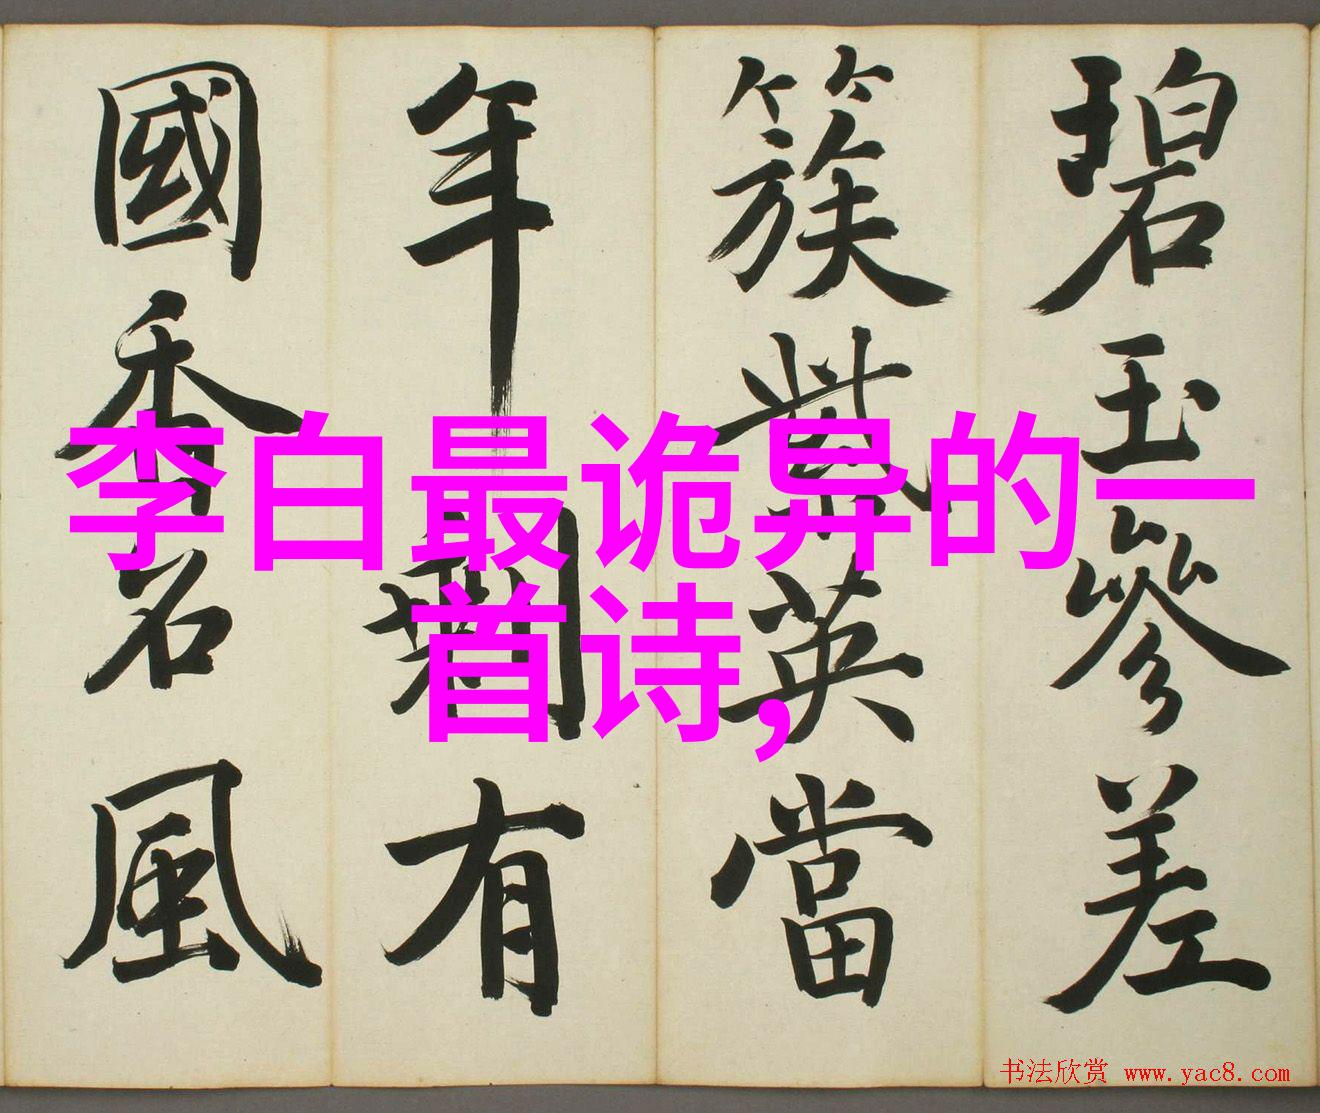 碧玉參差
簇紫英當
年剩有
國香名風
李白最诡异的一
首诗,
书法欣赏 www.yac8.com